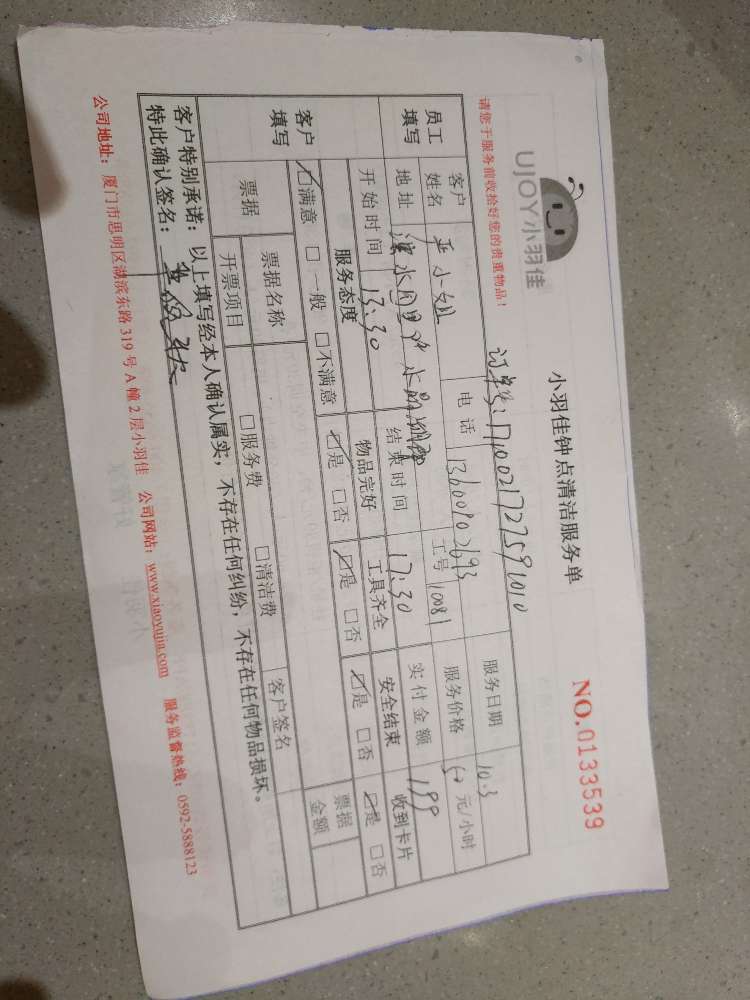 UJOY小羽佳
小羽佳钟点清洁服务单
NO.0133539
请您于服务前收拾好您的贵重物品！
订单号：
员工填写
客户姓名 严小姐 电话 13600902693 服务日期 10.3
地址 工号 10081 服务价格 50 元/小时
开始时间 13:30 结束时间 17:30 实付金额 199
客户填写
服务态度 物品完好 工具齐全 安全结束 收到卡片
☑满意 □一般 □不满意 ☑是 □否 ☑是 □否 ☑是 □否 ☑是 □否
票据 票据名称 客户签名 票据金额
开票项目 □服务费 □清洁费
客户特别承诺：以上填写经本人确认属实，不存在任何纠纷，不存在任何物品损坏。
特此确认签名：
公司地址：厦门市思明区湖滨东路319号A幢2层小羽佳 公司网站：www.xiaoyujia.com 服务监督热线：0592-5888123